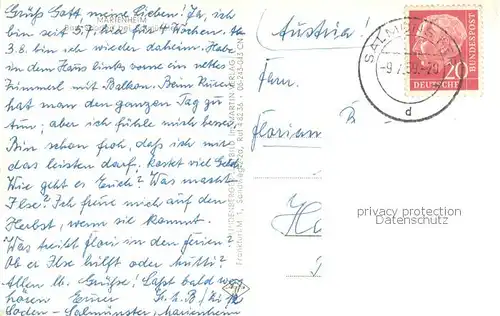 Grüß Gott, meine Lieben! Ja, ich
bin seit 5.7. hier für 4 Wochen. Am
3.8. bin ich wieder daheim. Habe
in dem Haus links vorne ein nettes
Zimmerl mit Balkon. Beim Kuren
hat man den ganzen Tag zu
tun, aber ich fühle mich besser.
Bin schon froh, daß ich mir
das leisten darf, kostet viel Geld.
Wie geht es Euch? Was macht
Ilse? Ich freue mich auf den
Herbst, wenn sie kommt.
Was treibt Flori in den Ferien?
Ob er Ilse hilft oder Mutti?
Allen lb. Grüße! Laßt bald was
hören Eurer
Soden-Salmünster, Marienheim
MARIENHEIM
Frankfurt/M. 1
(Austria!)
Fam.
B
Florian
Ha
SALMÜNSTER
-9.7.59.-20
d
DEUTSCHE BUNDESPOST
20
privacy protection
Datenschutz